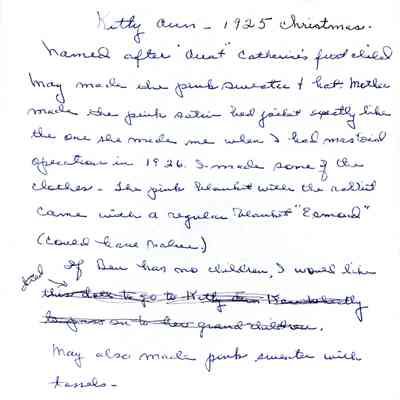 Kitty Ann - 1925 Christmas.
Named after "Aunt" Catherine's first child
May made the pink sweater & hat. Mother
made the pink satin bed jacket exactly like
the one she made me when I had mastoid
operation in 1926. I made some of the
clothes - The pink blanket with the rabbit
came with a regular blanket "Esmond"
(could have value.)
If Ben has no children, I would like
this doll to go to Kitty Ann
to pass on to her grandchildren.
May also made pink sweater with
tassels -